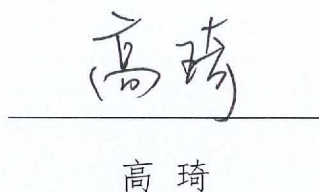 高琦
高 琦